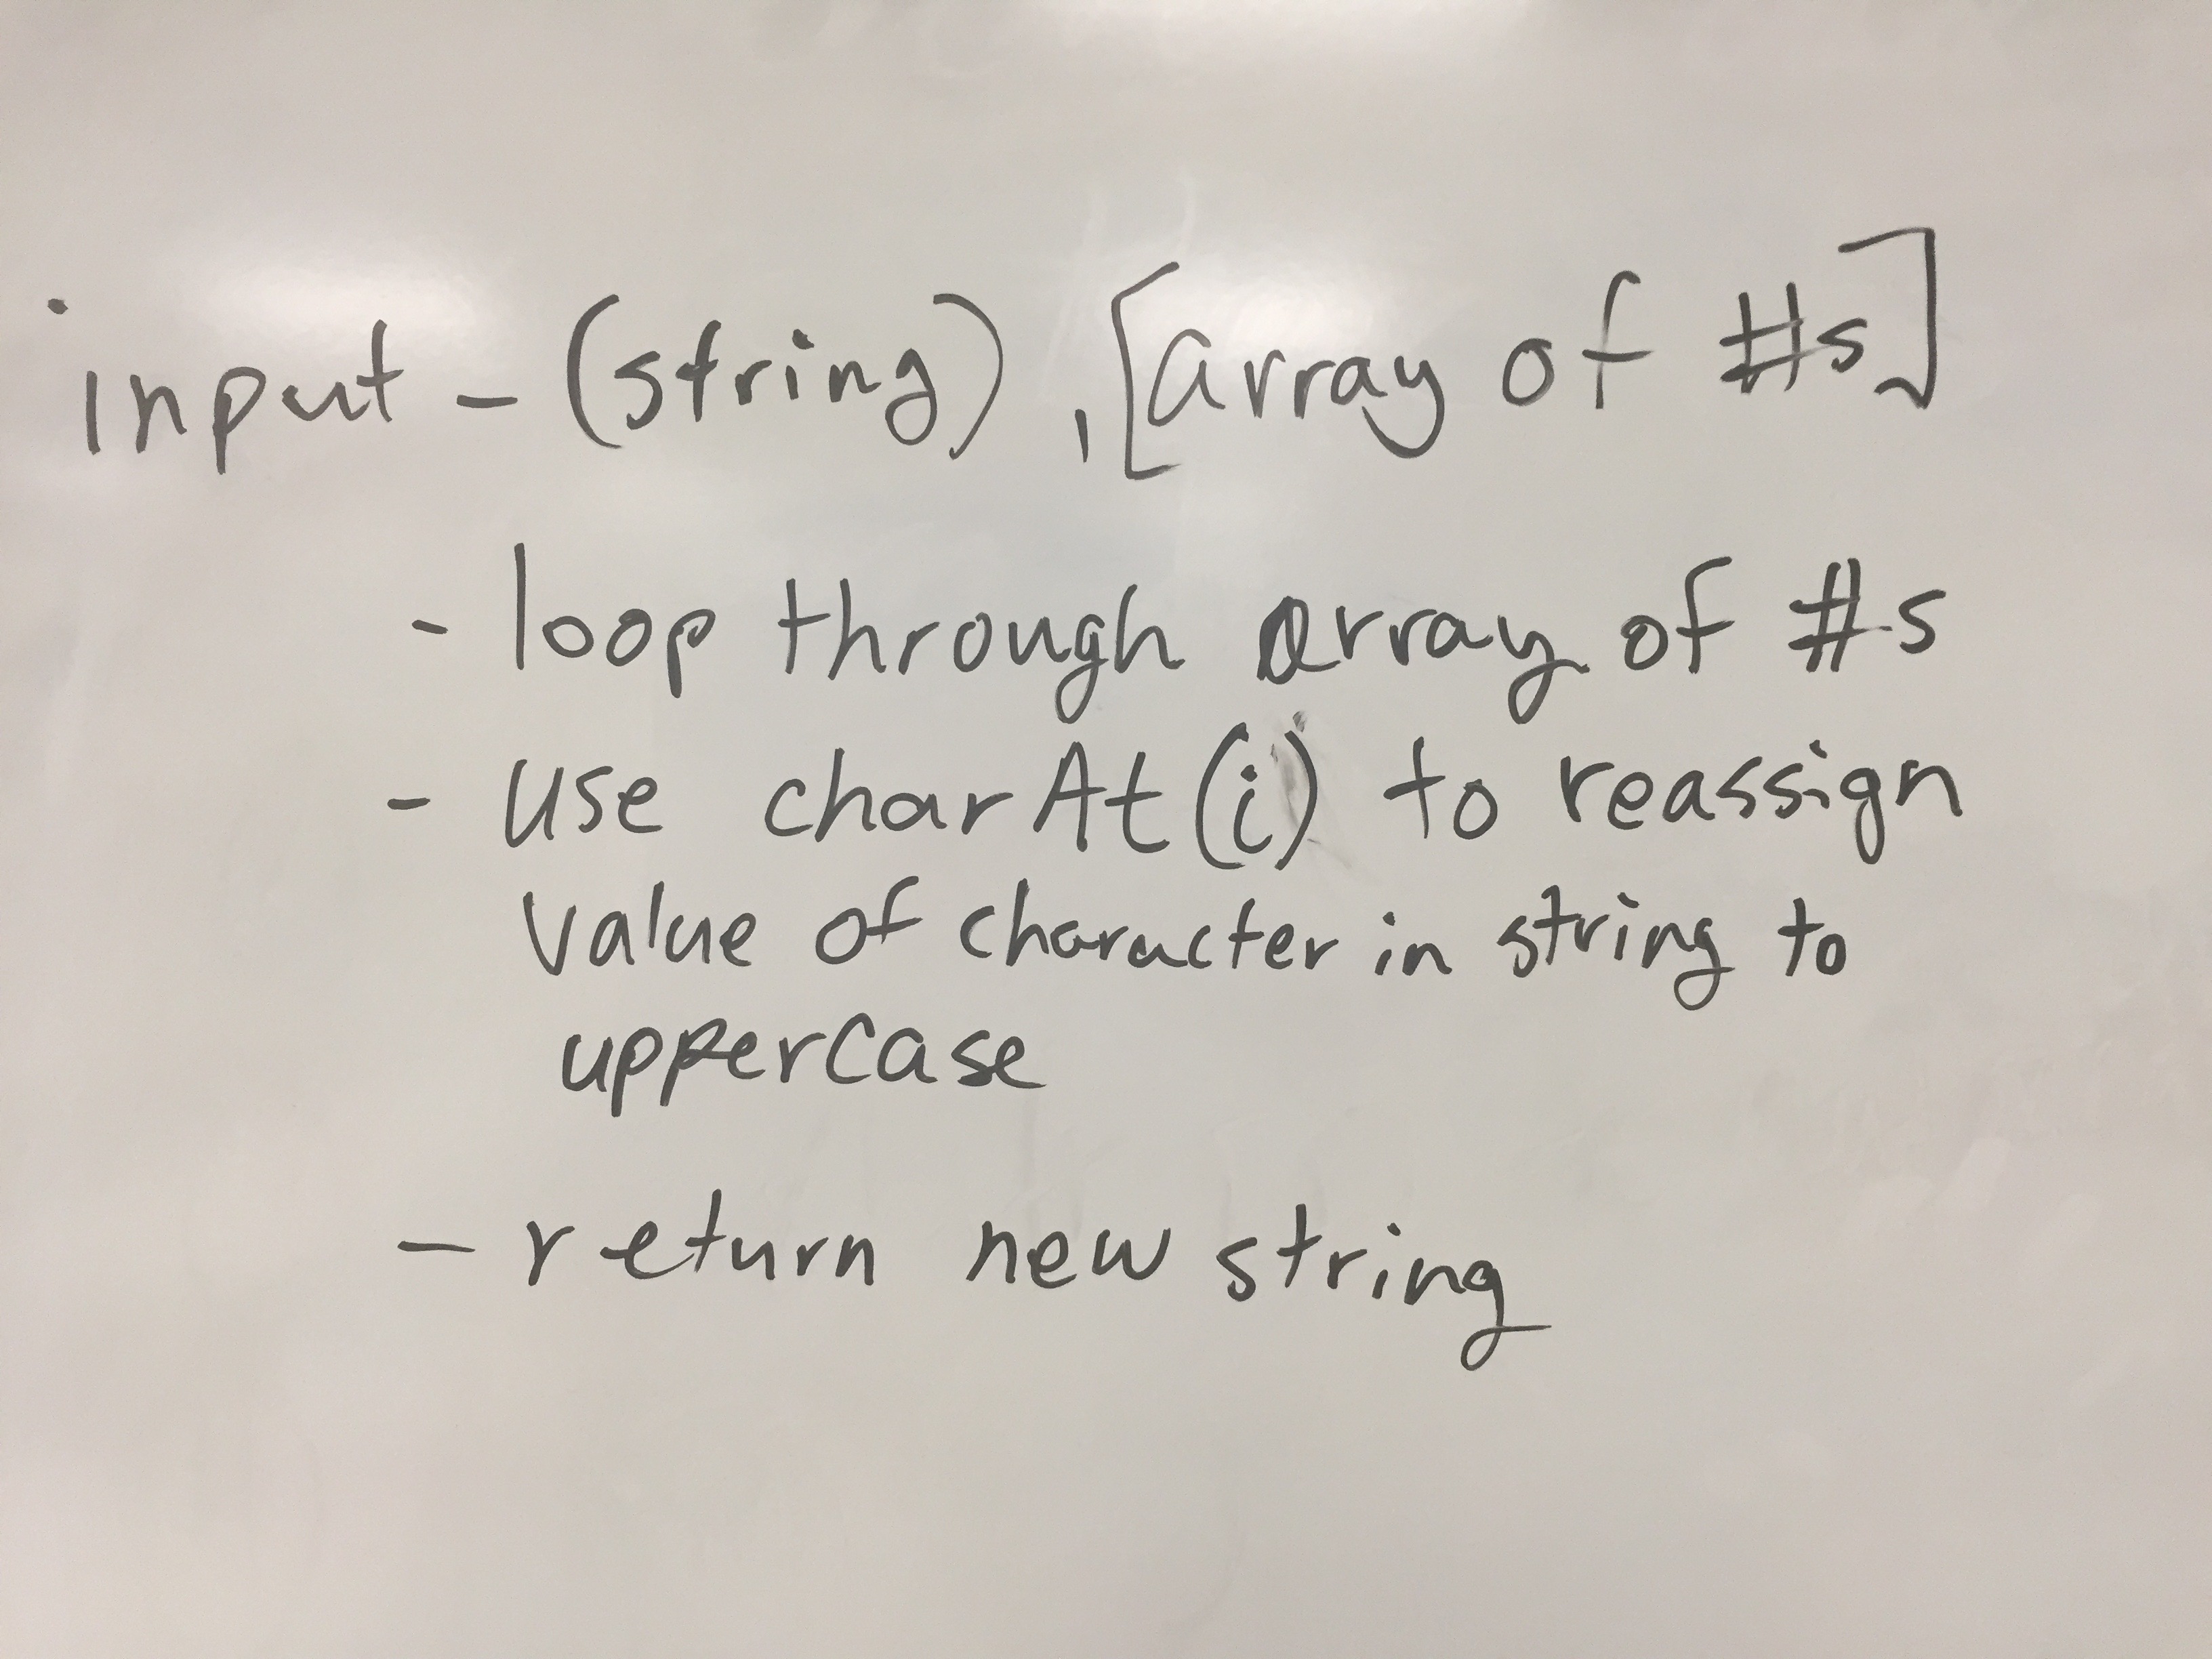 input - (string), [array of #s]
- loop through array of #s
- use charAt(i) to reassign
value of character in string to
upperCase
- return new string